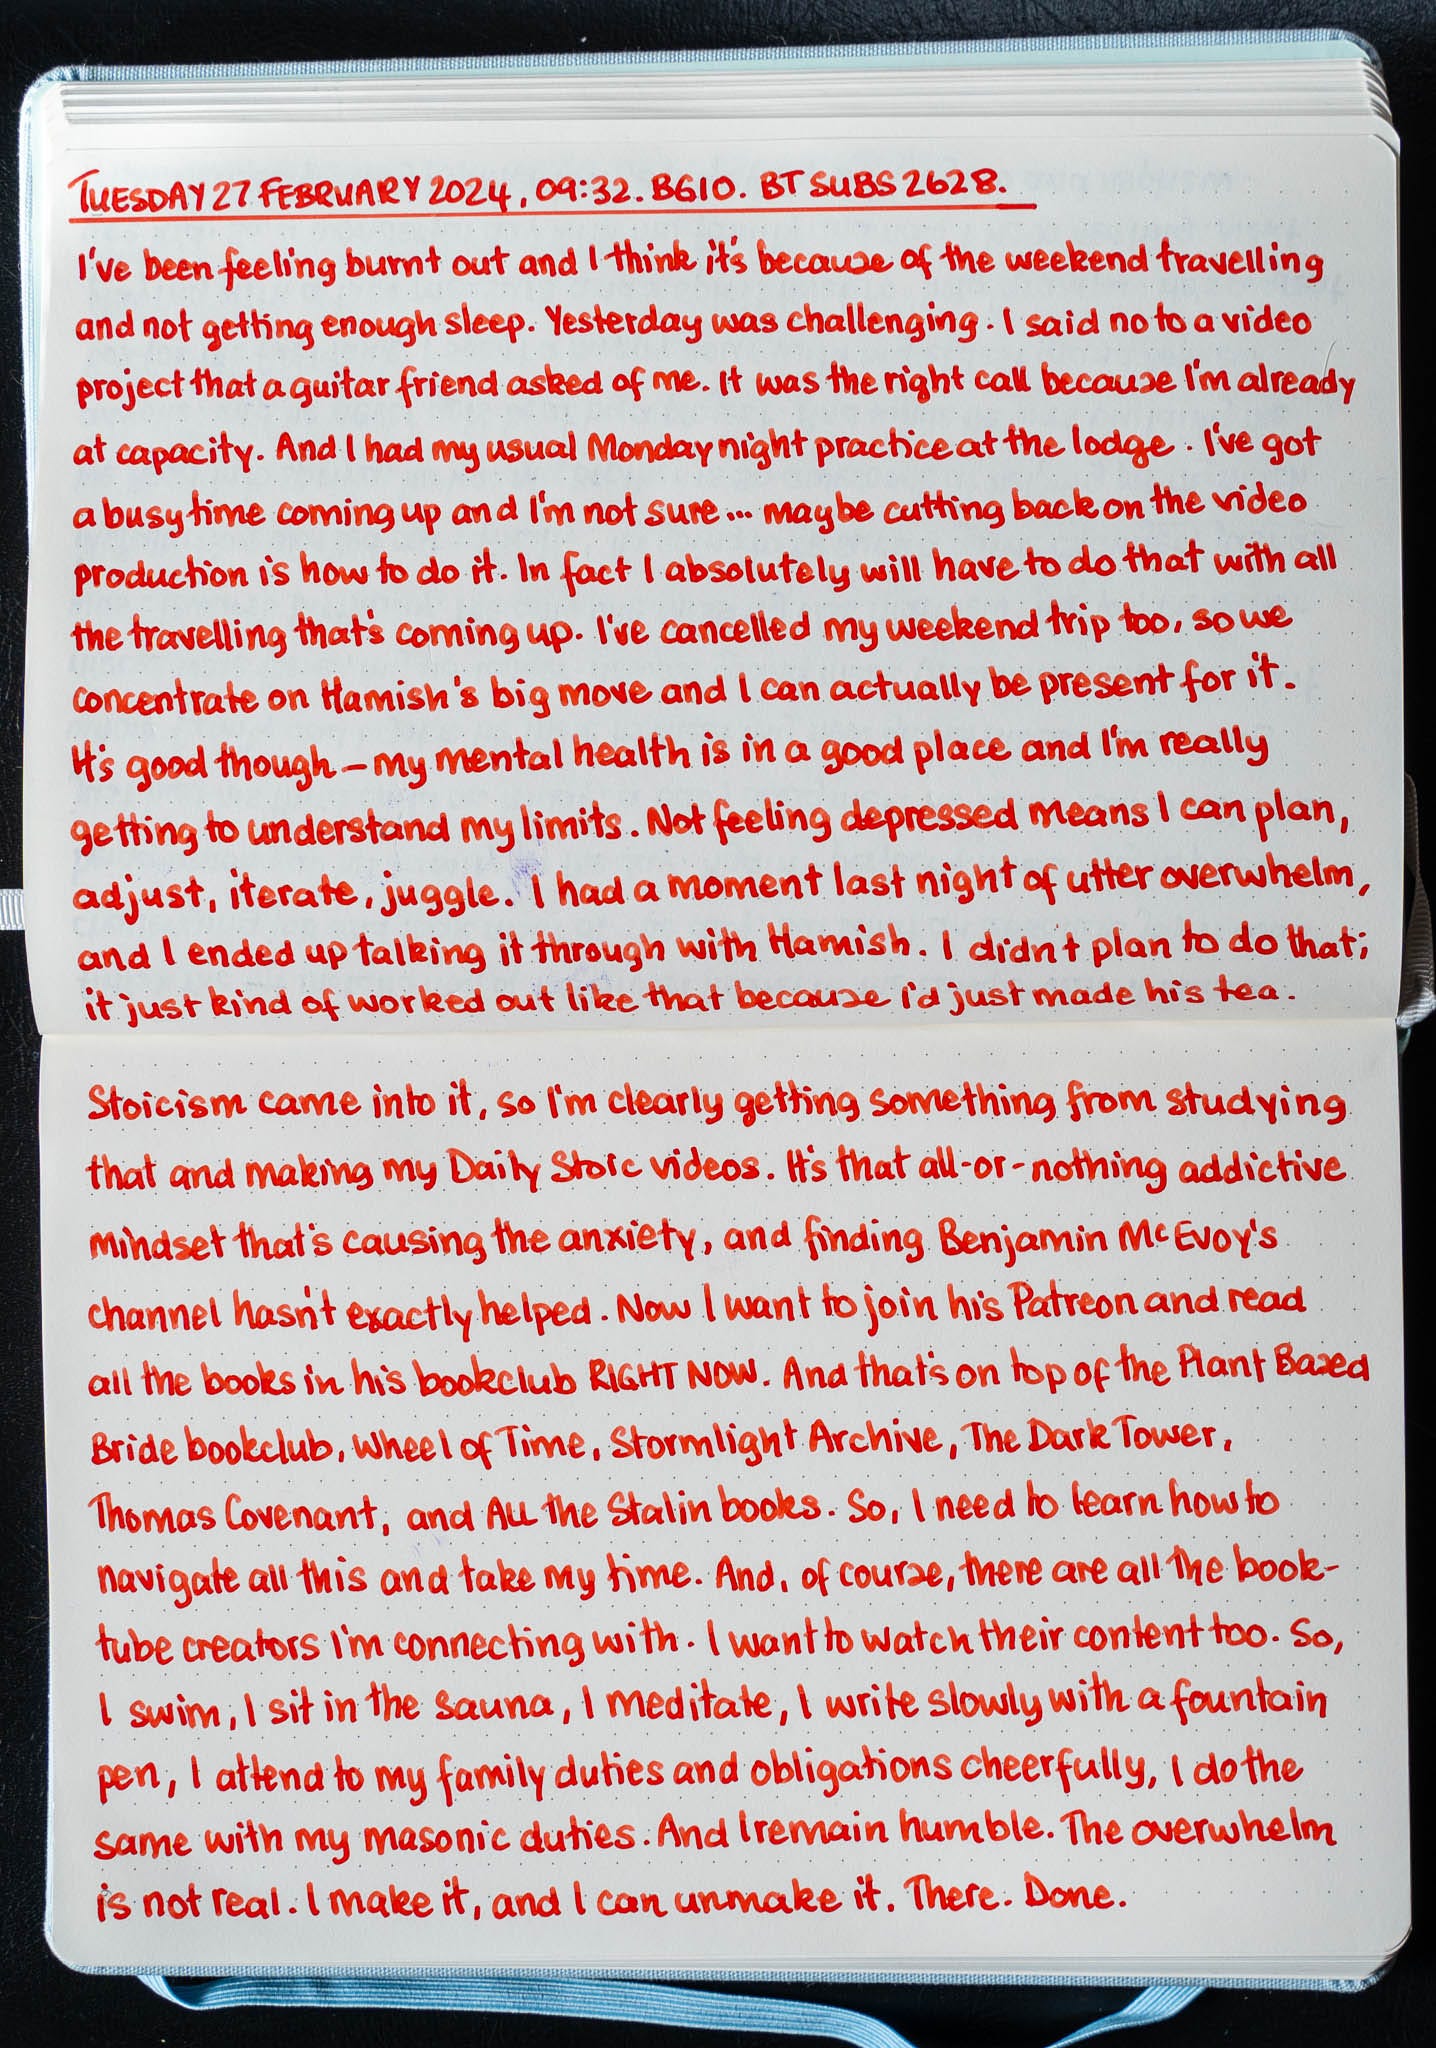 TUESDAY 27 FEBRUARY 2024, 09:32. BG10. BT SUBS 2628.
I've been feeling burnt out and I think it's because of the weekend travelling
and not getting enough sleep. Yesterday was challenging. I said no to a video
project that a guitar friend asked of me. It was the right call because I'm already
at capacity. And I had my usual Monday night practice at the lodge. I've got
a busy time coming up and I'm not sure... maybe cutting back on the video
production is how to do it. In fact I absolutely will have to do that with all
the travelling that's coming up. I've cancelled my weekend trip too, so we
concentrate on Hamish's big move and I can actually be present for it.
It's good though – my mental health is in a good place and I'm really
getting to understand my limits. Not feeling depressed means I can plan,
adjust, iterate, juggle. I had a moment last night of utter overwhelm,
and I ended up talking it through with Hamish. I didn't plan to do that;
it just kind of worked out like that because I'd just made his tea.
Stoicism came into it, so I'm clearly getting something from studying
that and making my Daily Stoic videos. It's that all-or-nothing addictive
mindset that's causing the anxiety, and finding Benjamin McEvoy's
channel hasn't exactly helped. Now I want to join his Patreon and read
all the books in his bookclub RIGHT NOW. And that's on top of the Plant Based
Bride bookclub, Wheel of Time, Stormlight Archive, The Dark Tower,
Thomas Covenant, and ALL the Stalin books. So, I need to learn how to
navigate all this and take my time. And, of course, there are all the book-
tube creators I'm connecting with. I want to watch their content too. So,
I swim, I sit in the sauna, I meditate, I write slowly with a fountain
pen, I attend to my family duties and obligations cheerfully, I do the
same with my masonic duties. And I remain humble. The overwhelm
is not real. I make it, and I can unmake it. There. Done.